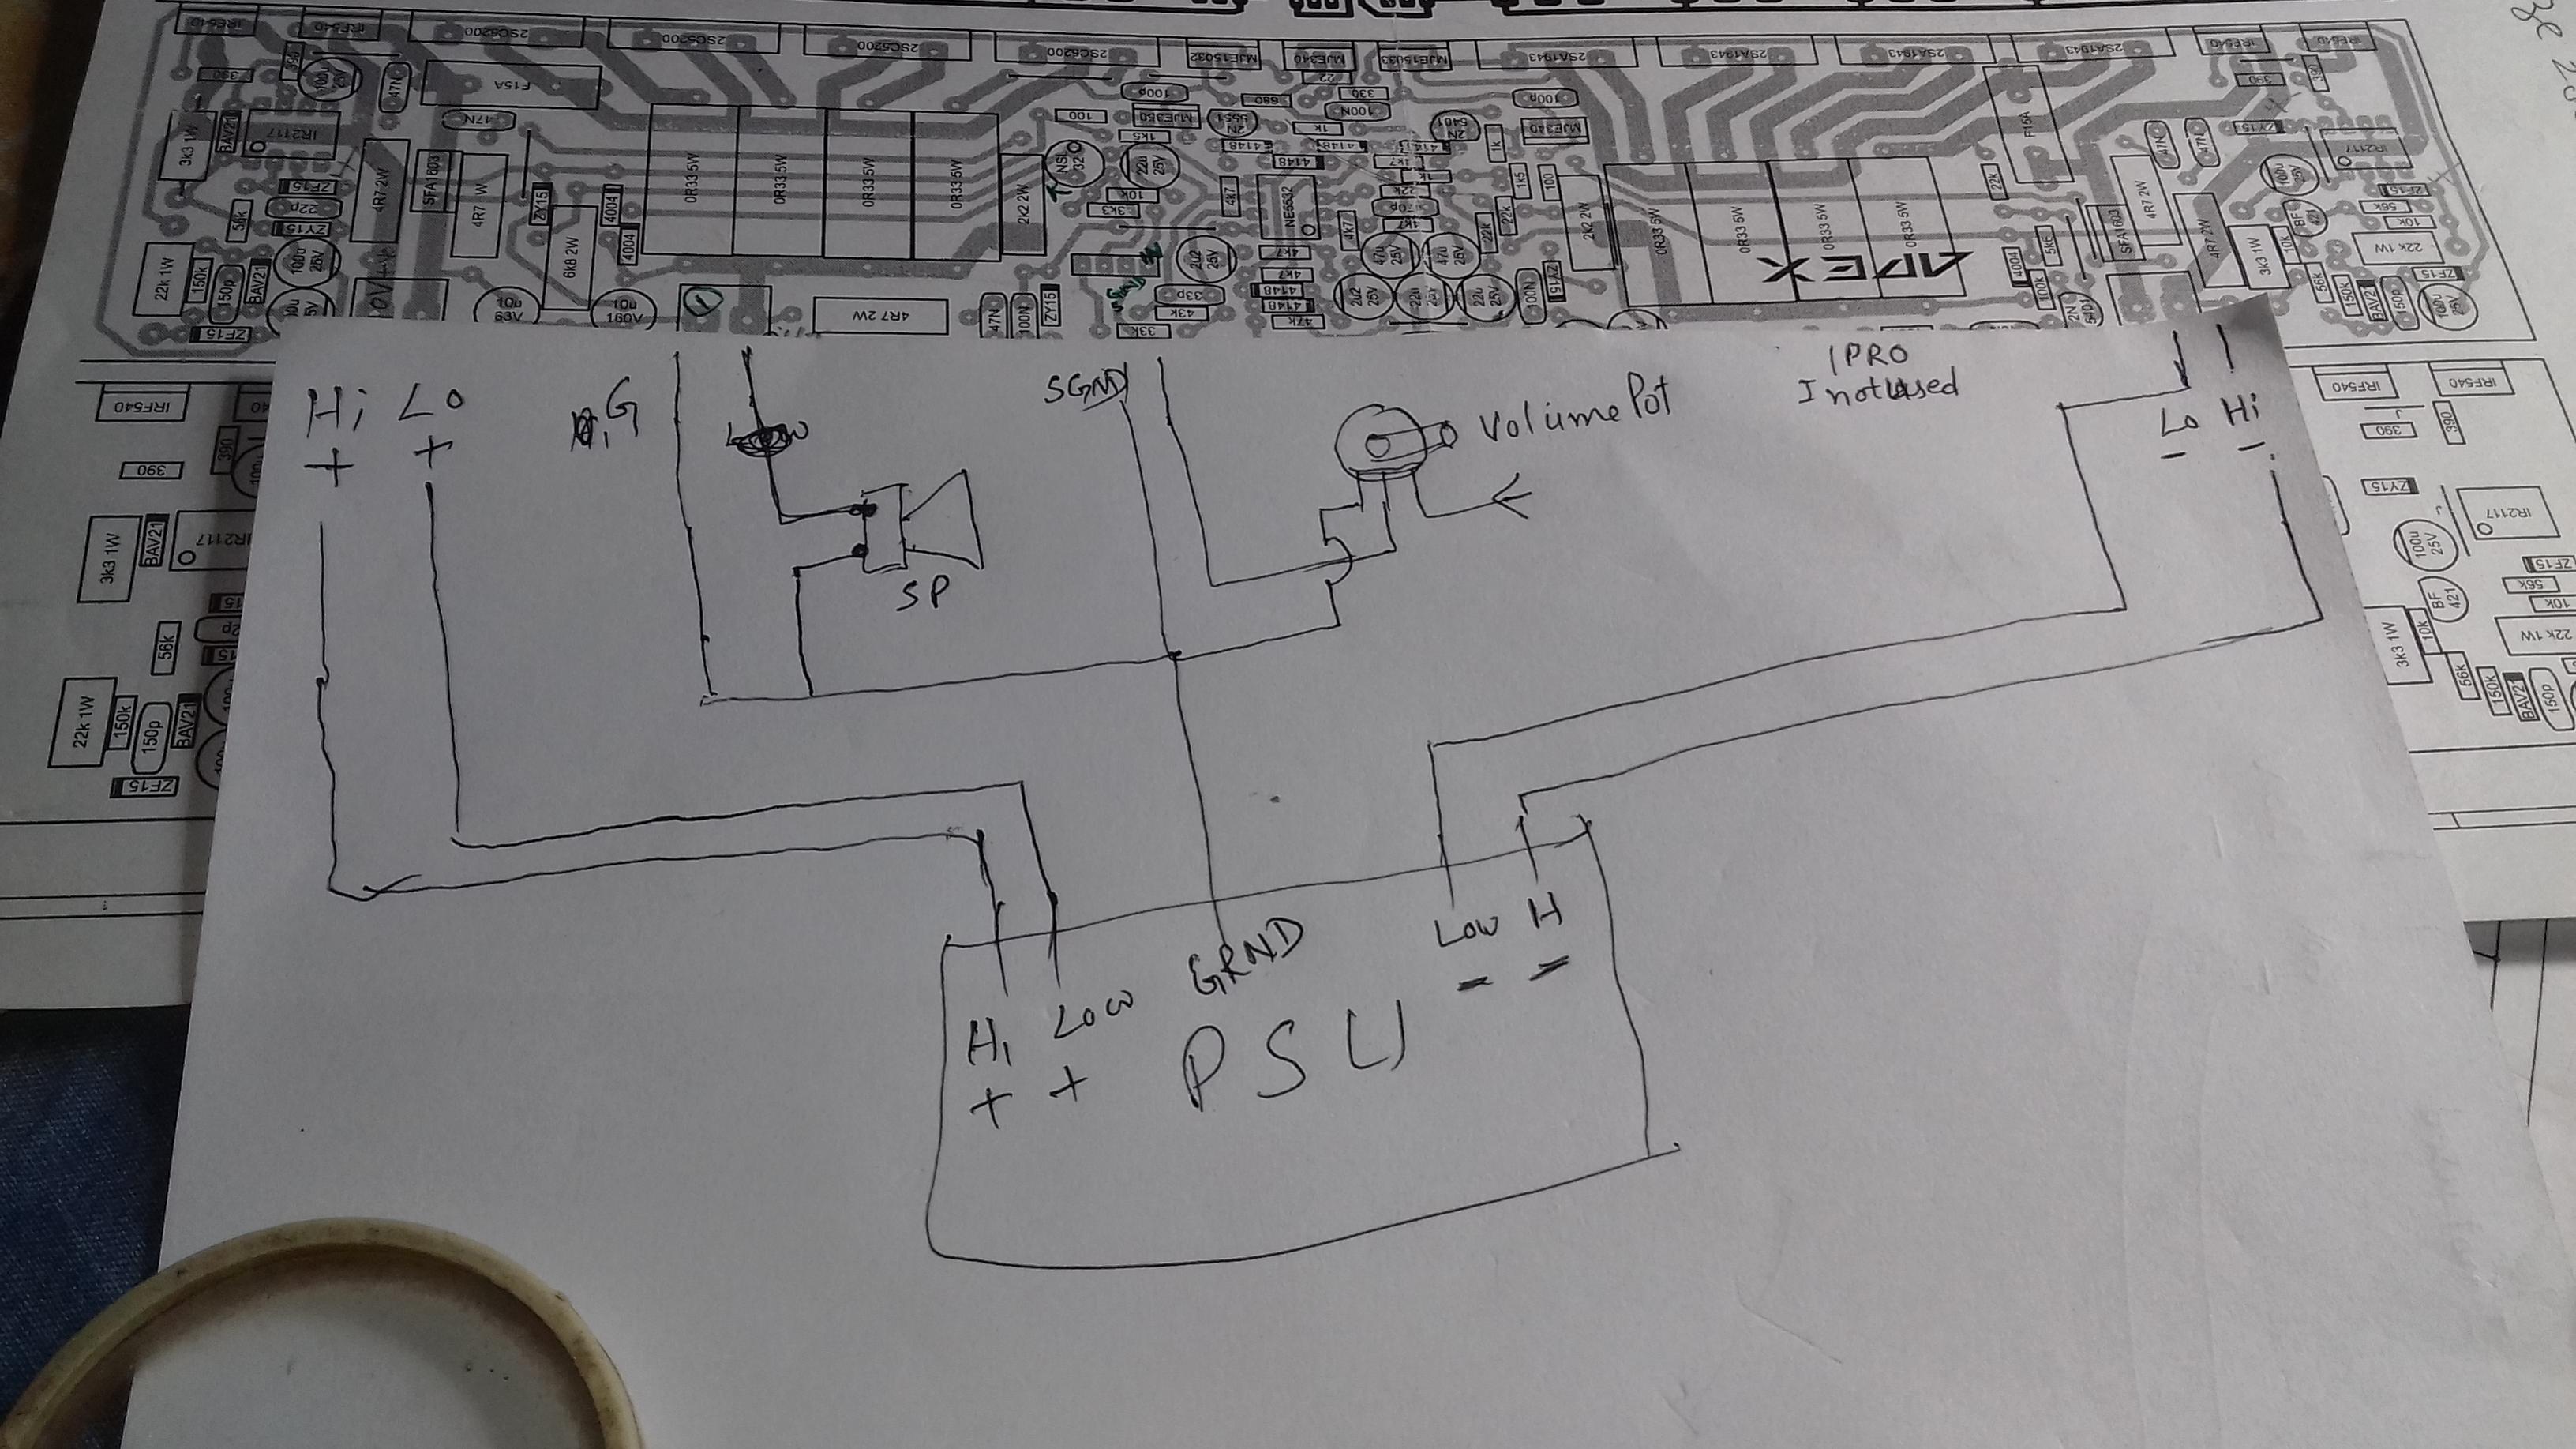 IRF540
IRF540
2SC5200
2SC5200
2SC5200
2SC5200
MJE15032
MJE340
MJE15033
2SA1943
2SA1943
2SA1943
2SA1943
IRF540
IRF540
390
100u 25V
47N
F15A
22
100p
680
330
100N
100p
390
390
3k3 1W
BAV21
IR2117
47N
100
MJE350
2N 5551
1k
2N 5401
MJE340
1k
F15A
47N
47N
ZY15
IR2117
4R7 2W
SFA1603
4R7 W
0R33 5W
0R33 5W
0R33 5W
0R33 5W
2k2 2W
1k5
22u 25V
4148
4148
4148
1k7
1k
22k
1k5
100
22k
100u 25V
ZF15
22p
ZY15
56k
ZY15
4004
4004
6k8 2W
10k
3k3
4k7
NE5532
4k7
22k
22k
2k2 2W
0R33 5W
0R33 5W
0R33 5W
0R33 5W
APEX
SFA1603
4R7 2W
4R7 2W
BF 421
ZF15
56k
10k
22k 1W
150k
150p
BAV21
100u 25V
2u2 25V
4k7
4k7
4148
4148
47k
47u 25V
47u 25V
2u2 25V
22u 25V
22u 25V
100N
ZY15
4004
5k6
100k
3k3 1W
10k
22k 1W
56k
150k
BAV21
150p
ZF15
100u 25V
ZF15
10u 63V
10u 160V
4R7 2W
47N
100N
ZY15
33p
43k
33k
Hi Lo
+ +
G
SGND
Volume Pot
IPRO
I not used
Lo Hi
- -
SP
Hi Low GRND Low H
+ + - -
PSU
IRF540
390
390
3k3 1W
BAV21
IR2117
56k
22k 1W
150k
150p
BAV21
ZF15
IRF540
IRF540
390
390
ZY15
IR2117
100u 25V
ZF15
56k
10k
BF 421
3k3 1W
10k
22k 1W
56k
150k
BAV21
150p